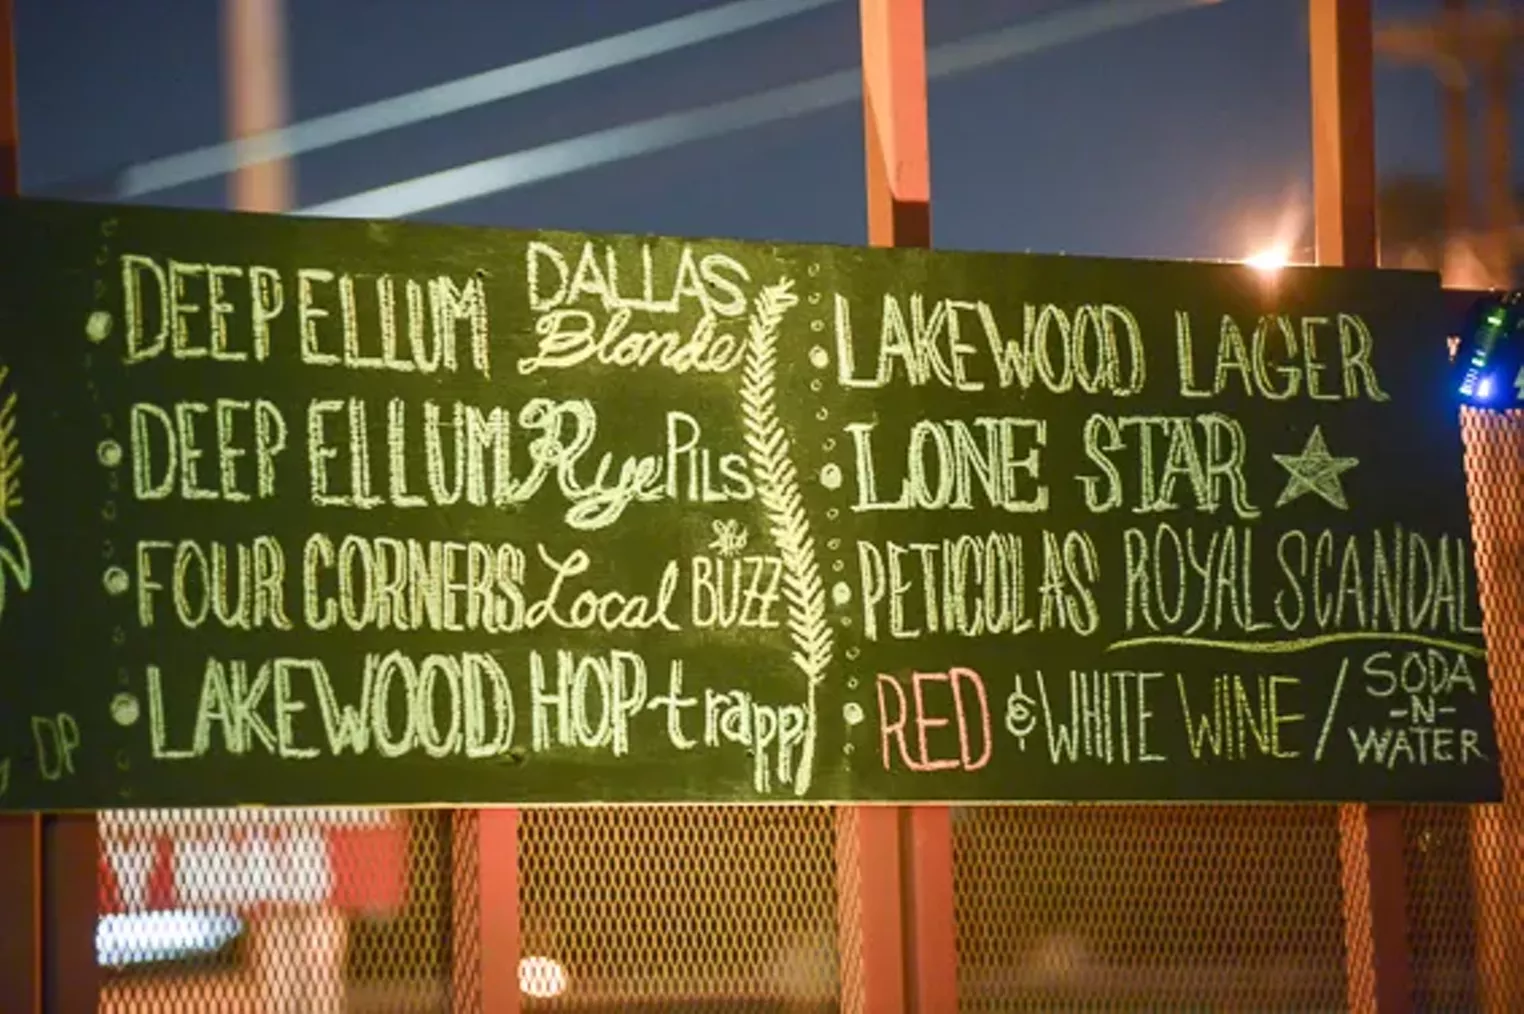 DEEP ELLUM DALLAS Blonde
DEEP ELLUM Rye PILS
FOUR CORNERS Local BUZZ
LAKEWOOD HOP trapp
DP
LAKEWOOD LAGER
LONE STAR
PETICOLAS ROYAL SCANDAL
RED & WHITE WINE / SODA
-N-
WATER